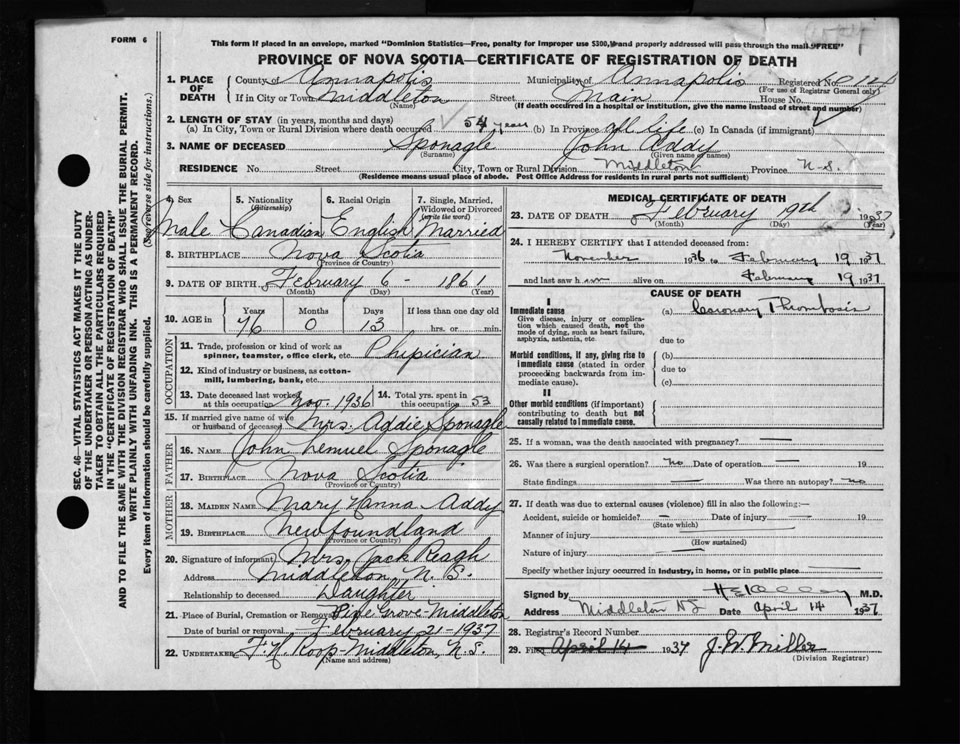 FORM 6
This form if placed in an envelope, marked "Dominion Statistics—Free, penalty for improper use $300, and properly addressed will pass through the mail "FREE"
PROVINCE OF NOVA SCOTIA—CERTIFICATE OF REGISTRATION OF DEATH
1. PLACE OF DEATH County of Annapolis Municipality of Annapolis Registered No.
(For use of Registrar General only)
If in City or Town Middleton Street Main House No.
(Name) (If death occurred in a hospital or institution, give the name instead of street and number)
2. LENGTH OF STAY (in years, months and days)
(a) In City, Town or Rural Division where death occurred 54 years (b) In Province all life (c) In Canada (if immigrant)
3. NAME OF DECEASED Sponagle John Addy
(Surname) (Given name or names)
RESIDENCE No. Street City, Town or Rural Division Middleton Province N.S.
(Residence means usual place of abode. Post Office Address for residents in rural parts not sufficient)
4. Sex 5. Nationality (Citizenship) 6. Racial Origin 7. Single, Married, Widowed or Divorced (write the word)
Male Canadian English Married
8. BIRTHPLACE Nova Scotia
(Province or Country)
9. DATE OF BIRTH February 6 - 1861
(Month) (Day) (Year)
10. AGE in Years Months Days If less than one day
76 0 13 hrs. or min.
OCCUPATION
11. Trade, profession or kind of work as spinner, teamster, office clerk, etc. Phipician
12. Kind of industry or business, as cotton-mill, lumbering, bank, etc.
13. Date deceased last worked at this occupation Nov. 1936 14. Total yrs. spent in this occupation 53
15. If married give name of wife or husband of deceased Mrs. Addie Sponagle
FATHER
16. NAME John Lemuel Sponagle
17. BIRTHPLACE Nova Scotia
(Province or Country)
MOTHER
18. MAIDEN NAME Mary Hanna Addy
19. BIRTHPLACE Newfoundland
(Province or Country)
20. Signature of informant Mrs. Jack Reagh
Address Middleton, N.S.
Relationship to deceased Daughter
21. Place of Burial, Cremation or Removal Pine Grove-Middleton
Date of burial or removal February 21-1937
22. UNDERTAKER F.N. Roop-Middleton, N.S.
(Name and address)
MEDICAL CERTIFICATE OF DEATH
23. DATE OF DEATH February 19th 1937
(Month) (Day) (Year)
24. I HEREBY CERTIFY that I attended deceased from:
November 1936 to February 19 1937
and last saw him alive on February 19 1937
CAUSE OF DEATH
I
Immediate cause (a) Coronary Thrombosis
Give disease, injury or complication which caused death, not the mode of dying, such as heart failure, asphyxia, asthenia, etc.
due to
Morbid conditions, if any, giving rise to immediate cause (stated in order proceeding backwards from immediate cause).
(b)
due to
(c)
II
Other morbid conditions (if important) contributing to death but not causally related to immediate cause.
25. If a woman, was the death associated with pregnancy? —
26. Was there a surgical operation? no Date of operation — 19
State findings — Was there an autopsy? no
27. If death was due to external causes (violence) fill in also the following:—
Accident, suicide or homicide? — Date of injury — 19
(State which)
Manner of injury —
(How sustained)
Nature of injury —
Specify whether injury occurred in industry, in home, or in public place —
Signed by M.D.
Address Middleton NS Date April 14 1937
28. Registrar's Record Number
29. Filed April 14 1937 J.W. Miller
(Division Registrar)
SEC. 46—VITAL STATISTICS ACT MAKES IT THE DUTY
OF THE UNDERTAKER OR PERSON ACTING AS UNDER-
TAKER TO OBTAIN ALL THE PARTICULARS REQUIRED
IN THE "CERTIFICATE OF REGISTRATION OF DEATH"
AND TO FILE THE SAME WITH THE DIVISION REGISTRAR WHO SHALL ISSUE THE BURIAL PERMIT.
WRITE PLAINLY WITH UNFADING INK. THIS IS A PERMANENT RECORD.
Every item of information should be carefully supplied. (See reverse side for instructions.)